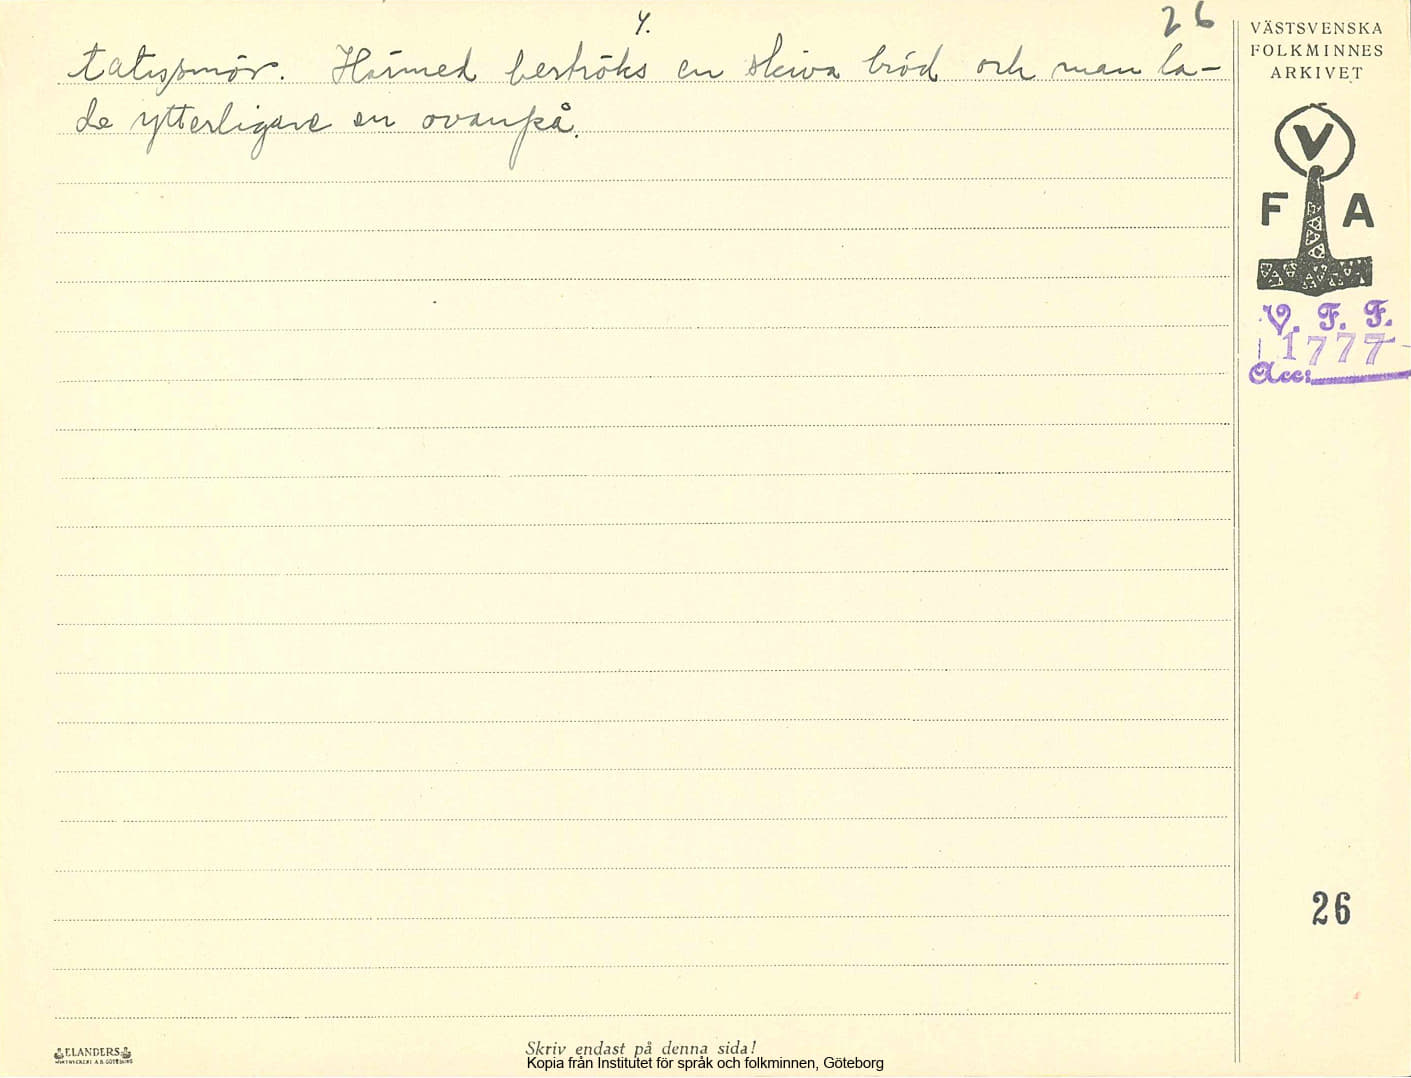 4.
26
tatissmör. Härmed beströks en skiva bröd och man la-
de ytterligare en ovanpå.
VÄSTSVENSKA
FOLKMINNES
ARKIVET
V
F A
V. F. F.
1777
Acc:
26
ELANDERS
Skriv endast på denna sida!
Kopia från Institutet för språk och folkminnen, Göteborg